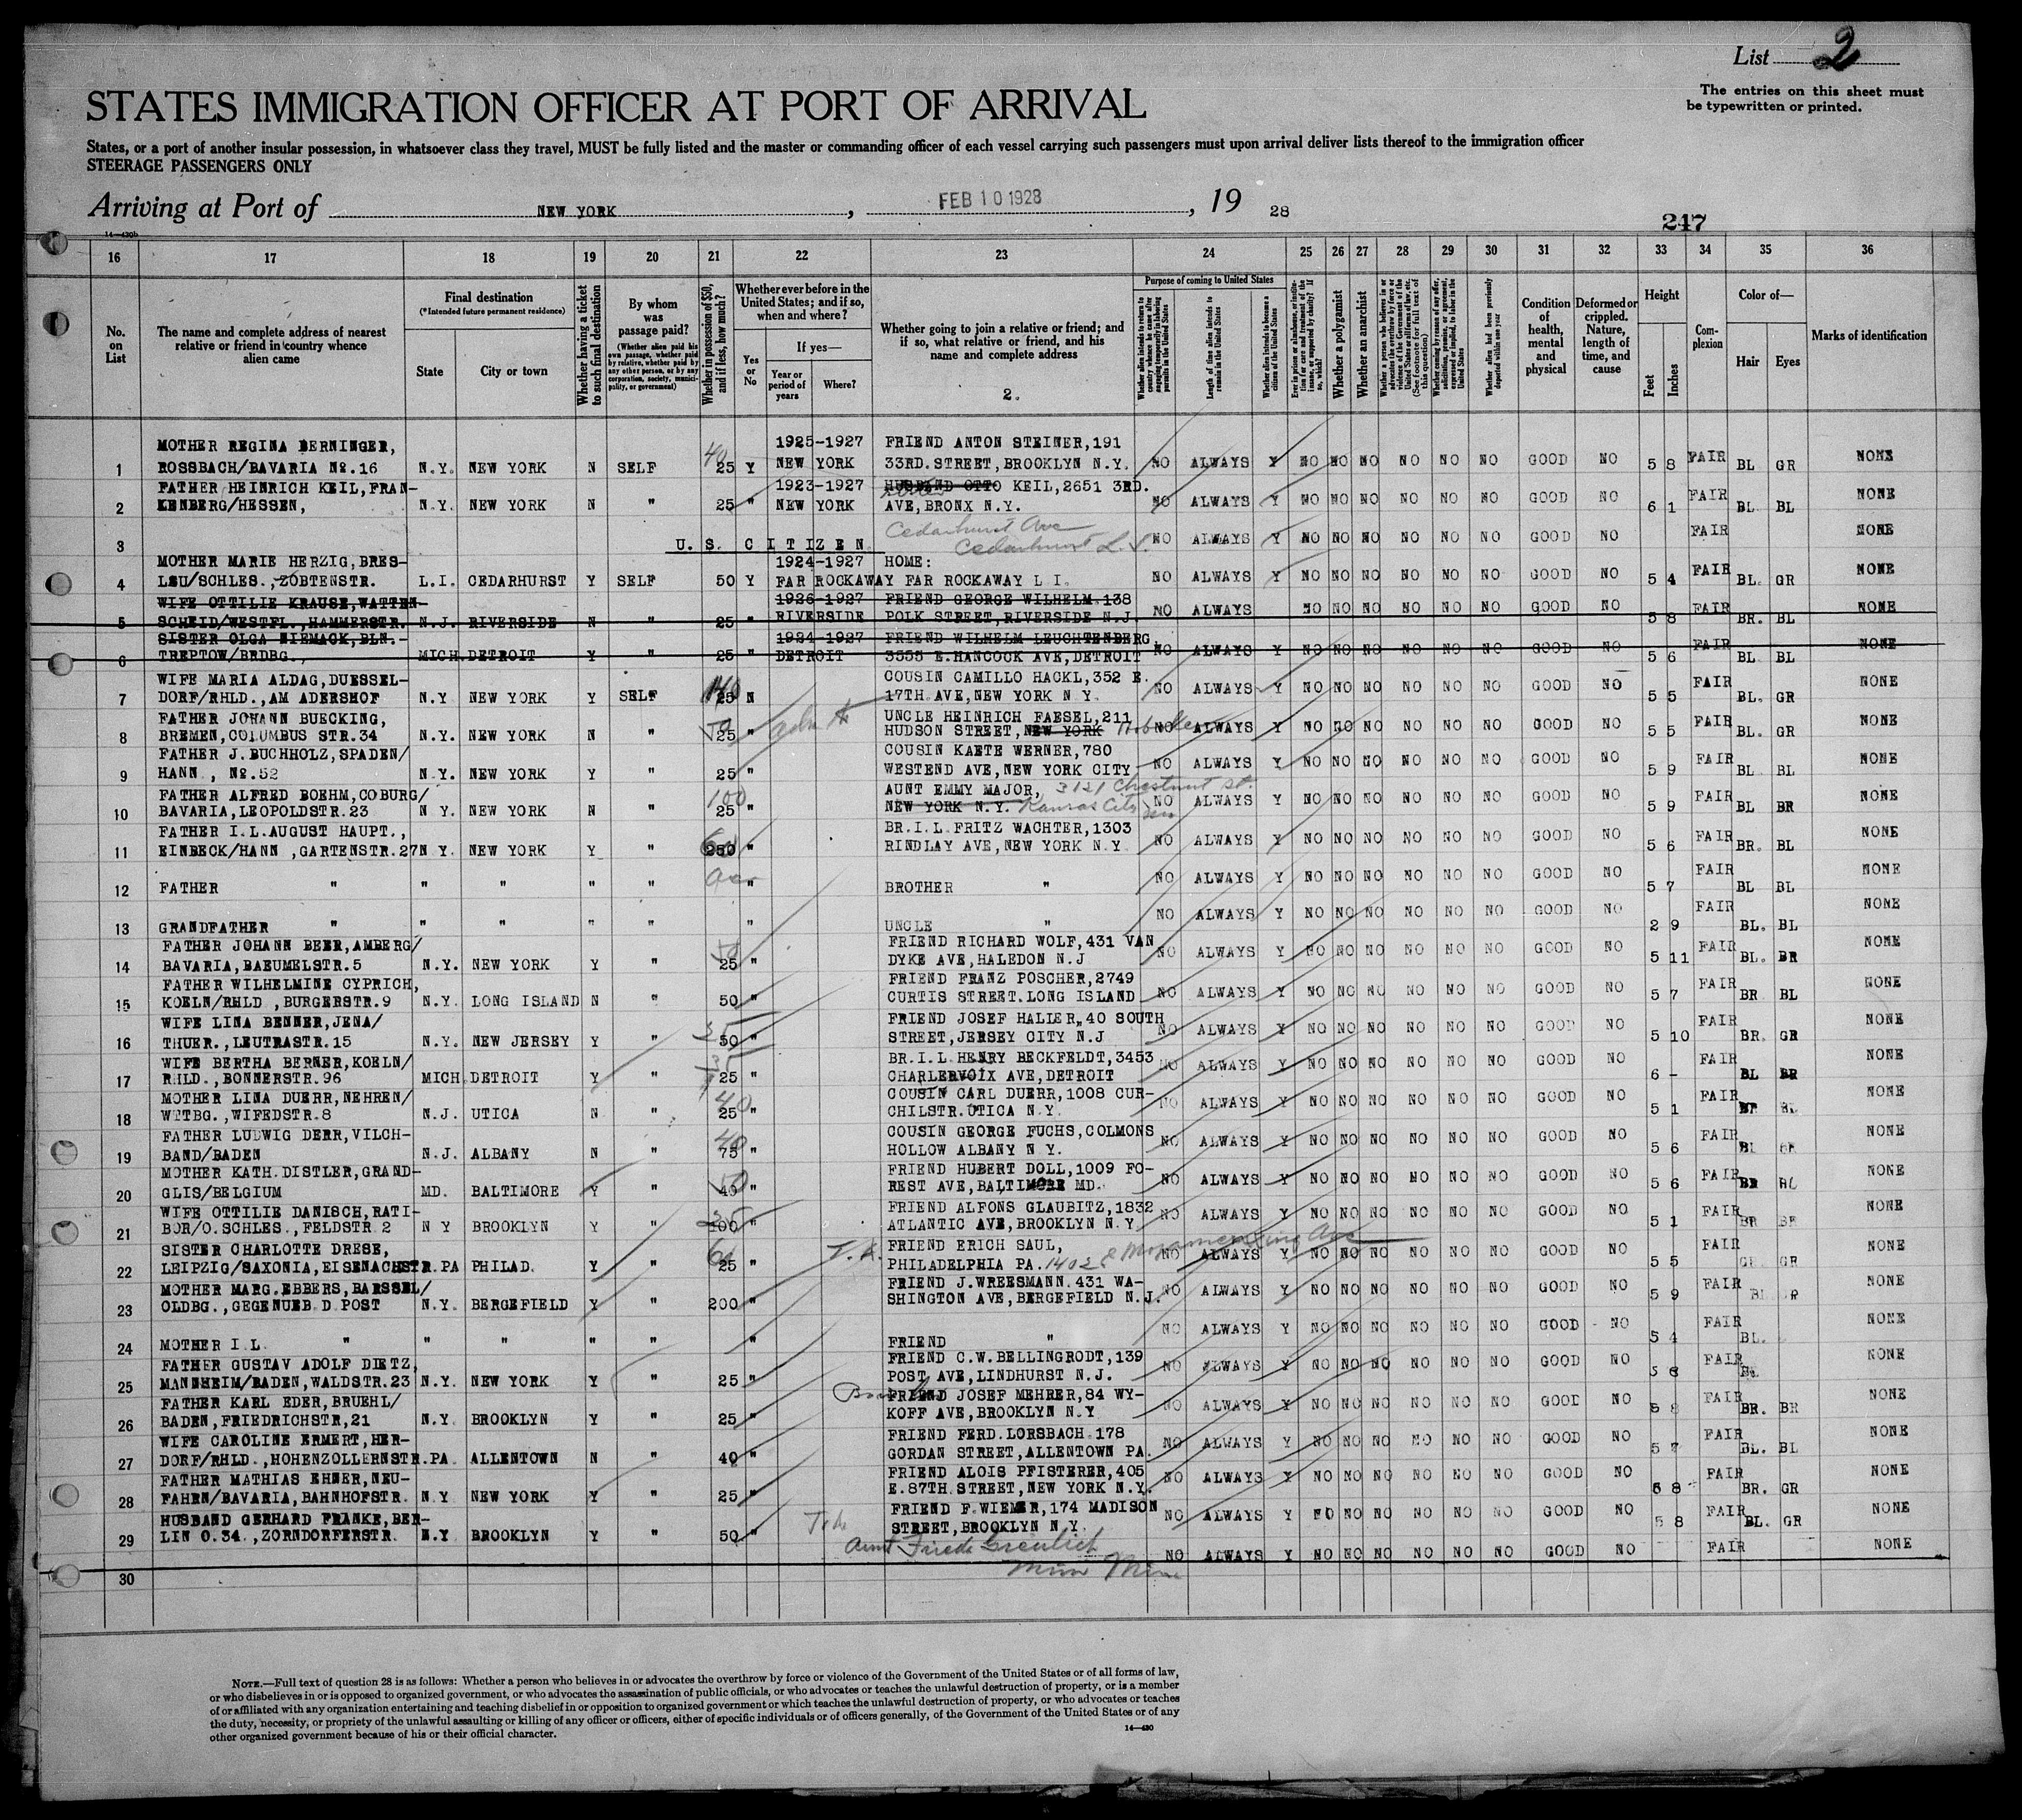 List 2
The entries on this sheet must
be typewritten or printed.
STATES IMMIGRATION OFFICER AT PORT OF ARRIVAL
States, or a port of another insular possession, in whatsoever class they travel, MUST be fully listed and the master or commanding officer of each vessel carrying such passengers must upon arrival deliver lists thereof to the immigration officer
STEERAGE PASSENGERS ONLY
Arriving at Port of NEW YORK, FEB 10 1928, 19 28
247
14—430b
16 17 18 19 20 21 22 23 24 25 26 27 28 29 30 31 32 33 34 35 36
No. on List
The name and complete address of nearest relative or friend in country whence alien came
Final destination
(*Intended future permanent residence)
State
City or town
Whether having a ticket to such final destination
By whom was passage paid?
(Whether alien paid his own passage, whether paid by relative, whether paid by any other person, or by any corporation, society, municipality, or government)
Whether in possession of $50, and if less, how much?
Whether ever before in the United States; and if so, when and where?
Yes or No
If yes—
Year or period of years
Where?
Whether going to join a relative or friend; and if so, what relative or friend, and his name and complete address
2.
Purpose of coming to United States
Length of time alien intends to remain in the United States
Whether alien intends to become a citizen of the United States
Whether a polygamist
Whether an anarchist
Condition of health, mental and physical
Deformed or crippled. Nature, length of time, and cause
Height
Feet
Inches
Complexion
Color of—
Hair
Eyes
Marks of identification
MOTHER REGINA BERNINGER, 1925-1927 FRIEND ANTON STEINER,191
1 ROSSBACH/BAVARIA No.16 N.Y. NEW YORK N SELF 40 25 Y NEW YORK 33RD.STREET,BROOKLYN N.Y. NO ALWAYS Y NO NO NO NO NO NO GOOD NO 5 8 FAIR BL GR NONE
FATHER HEINRICH KEIL,FRAN- 1923-1927 HUSBAND OTTO KEIL,2651 3RD.
2 KENBERG/HESSEN, N.Y. NEW YORK N " 25 " NEW YORK AVE,BRONX N.Y. NO ALWAYS Y NO NO NO NO NO NO GOOD NO 6 1 FAIR BL BL NONE
Cedarhurst Ave
3 U. S. CITIZEN Cedarhurst L.I. NO ALWAYS Y NO NO NO NO NO NO GOOD NO FAIR NONE
MOTHER MARIE HERZIG,BRES- 1924-1927 HOME:
4 LSU/SCHLES.,ZOBTENSTR. L.I. CEDARHURST Y SELF 50 Y FAR ROCKAWAY FAR ROCKAWAY L I. NO ALWAYS Y NO NO NO NO NO NO GOOD NO 5 4 FAIR BL. GR NONE
WIFE OTTILIE KRAUSE,WATTEN- 1926-1927 FRIEND GEORGE WILHELM.138
5 SCHEID/WESTFL.,HAMMERSTR. N.J. RIVERSIDE N " 25 " RIVERSIDE POLK STREET,RIVERSIDE N.J. NO ALWAYS NO NO NO NO NO NO GOOD NO 5 8 FAIR BR. BL NONE
SISTER OLGA NIEMACK,BLN.- 1924-1927 FRIEND WILHELM LEUCHTENBERG
6 TREPTOW/BRDBG., MICH DETROIT Y " 25 " DETROIT 3555 E.HANCOCK AVE,DETROIT NO ALWAYS Y NO NO NO NO NO NO GOOD NO 5 6 FAIR BL BL NONE
WIFE MARIA ALDAG,DUESSEL- COUSIN CAMILLO HACKL,352 E.
7 DORF/RHLD.,AM ADERSHOF N.Y. NEW YORK Y SELF 140 25 N 17TH AVE,NEW YORK N Y. NO ALWAYS Y NO NO NO NO NO NO GOOD NO 5 5 FAIR BL. GR NONE
FATHER JOHANN BUECKING, UNCLE HEINRICH FAESEL,211
8 BREMEN,COLUMBUS STR.34 N.Y. NEW YORK N " 50 25 " HUDSON STREET,NEW YORK Hoboken NO ALWAYS Y NO NO NO NO NO NO GOOD NO 5 5 FAIR BL. GR NONE
FATHER J.BUCHHOLZ,SPADEN/ COUSIN KAETE WERNER,780
9 HANN , No.52 N.Y. NEW YORK Y " 25 " WESTEND AVE,NEW YORK CITY NO ALWAYS Y NO NO NO NO NO NO GOOD NO 5 9 FAIR BL BL NONE
FATHER ALFRED BOEHM,COBURG/ AUNT EMMY MAJOR, 3121 Chestnut St.
10 BAVARIA,LEOPOLDSTR.23 N Y. NEW YORK N " 100 25 " NEW YORK N.Y. Kansas City NO ALWAYS Y NO NO NO NO NO NO GOOD NO 5 9 FAIR BL BR NONE
FATHER I.L.AUGUST HAUPT., BR.I.L.FRITZ WACHTER,1303
11 EINBECK/HANN ,GARTENSTR.27 N Y. NEW YORK Y " 250 " RINDLAY AVE,NEW YORK N.Y. NO ALWAYS Y NO NO NO NO NO NO GOOD NO 5 6 FAIR BR. BL NONE
12 FATHER " " " " " " BROTHER " NO ALWAYS Y NO NO NO NO NO NO GOOD NO 5 7 FAIR BL BL NONE
13 GRANDFATHER " " " " " " UNCLE " NO ALWAYS Y NO NO NO NO NO NO GOOD NO 2 9 FAIR BL. BL NONE
FATHER JOHANN BEER,AMBERG/ FRIEND RICHARD WOLF,431 VAN
14 BAVARIA,BAEUMELSTR.5 N.Y. NEW YORK Y " 50 25 " DYKE AVE,HALEDON N.J NO ALWAYS Y NO NO NO NO NO NO GOOD NO 5 11 FAIR BL. BR NONE
FATHER WILHELMINE CYPRICH, FRIEND FRANZ POSCHER,2749
15 KOELN/RHLD ,BURGERSTR.9 N.Y. LONG ISLAND N " 50 " CURTIS STREET.LONG ISLAND NO ALWAYS Y NO NO NO NO NO NO GOOD NO 5 7 FAIR BR BL NONE
WIFE LINA BENNER,JENA/ FRIEND JOSEF HALLER,40 SOUTH
16 THUER.,LEUTRASTR.15 N.Y. NEW JERSEY Y " 35 50 " STREET,JERSEY CITY N.J NO ALWAYS Y NO NO NO NO NO NO GOOD NO 5 10 FAIR BR. GR NONE
WIFE BERTHA BERNER,KOELN/ BR.I.L.HENRY BECKFELDT,3453
17 RHLD.,BONNERSTR.96 MICH DETROIT Y " 35 25 " CHARLERVOIX AVE,DETROIT NO ALWAYS Y NO NO NO NO NO NO GOOD NO 6 - FAIR BL BR NONE
MOTHER LINA DUERR,NEHREN/ COUSIN CARL DUERR,1008 CUR-
18 WTTBG.,WIFEDSTR.8 N.J. UTICA N " 40 25 " CHILSTR.UTICA N.Y. NO ALWAYS Y NO NO NO NO NO NO GOOD NO 5 1 FAIR BR BL NONE
FATHER LUDWIG DERR,VILCH- COUSIN GEORGE FUCHS,COLMONS
19 BAND/BADEN N.J. ALBANY N " 40 75 " HOLLOW ALBANY N Y. NO ALWAYS Y NO NO NO NO NO NO GOOD NO 5 6 FAIR BL NONE
MOTHER KATH.DISTLER,GRAND- FRIEND HUBERT DOLL,1009 FO-
20 GLIS/BELGIUM MD. BALTIMORE Y " 50 40 " REST AVE,BALTIMORE MD. NO ALWAYS Y NO NO NO NO NO NO GOOD NO 5 6 FAIR BR BL NONE
WIFE OTTILIE DANISCH,RATI- FRIEND ALFONS GLAUBITZ,1832
21 BOR/O.SCHLES.,FELDSTR.2 N Y BROOKLYN Y " 35 100 " ATLANTIC AVE,BROOKLYN N.Y. NO ALWAYS Y NO NO NO NO NO NO GOOD NO 5 1 FAIR BR BR NONE
SISTER CHARLOTTE DRESE, FRIEND ERICH SAUL,
22 LEIPZIG/SAXONIA,EISENACHSTR. PA PHILAD. Y " 25 " PHILADELPHIA PA. NO ALWAYS Y NO NO NO NO NO NO GOOD NO 5 5 FAIR GR NONE
MOTHER MARG.EBBERS,BARSSEL/ FRIEND J.WREESMANN.431 WA-
23 OLDBG.,GEGENUEB.D.POST N.Y. BERGEFIELD Y " 200 " SHINGTON AVE,BERGEFIELD N.J. NO ALWAYS Y NO NO NO NO NO NO GOOD NO 5 9 FAIR NONE
24 MOTHER I.L. " " " " " " FRIEND " NO ALWAYS Y NO NO NO NO NO NO GOOD NO 5 4 FAIR BL. NONE
FATHER GUSTAV ADOLF DIETZ, FRIEND C.W.BELLINGRODT,139
25 MANNHEIM/BADEN,WALDSTR.23 N.Y. NEW YORK Y " 25 " POST AVE,LINDHURST N.J. NO ALWAYS Y NO NO NO NO NO NO GOOD NO 5 8 FAIR NONE
FATHER KARL EDER,BRUEHL/ FRIEND JOSEF MEHRER,84 WY-
26 BADEN,FRIEDRICHSTR,21 N.Y. BROOKLYN Y " 25 " KOFF AVE,BROOKLYN N.Y NO ALWAYS Y NO NO NO NO NO NO GOOD NO 5 8 FAIR BR. BR NONE
WIFE CAROLINE ERMERT,HER- FRIEND FERD.LORSBACH.178
27 DORF/RHLD.,HOHENZOLLERNSTR. PA ALLENTOWN N " 40 " GORDAN STREET,ALLENTOWN PA. NO ALWAYS Y NO NO NO NO NO NO GOOD NO 5 7 FAIR BL. BL NONE
FATHER MATHIAS EHNER,NEU- FRIEND ALOIS PFISTERER,405
28 FAHRN/BAVARIA,BAHNHOFSTR. N.Y NEW YORK Y " 25 " E.87TH.STREET,NEW YORK N.Y. NO ALWAYS Y NO NO NO NO NO NO GOOD NO 5 8 FAIR BR. GR NONE
HUSBAND GERHARD FRANKE,BER- FRIEND F.WIEMER,174 MADISON
29 LIN O.34.,ZORNDORFERSTR. N.Y BROOKLYN Y " 50 " STREET,BROOKLYN N.Y. NO ALWAYS Y NO NO NO NO NO NO GOOD NO 5 8 FAIR BL. GR NONE
Aunt Frieda Greulich NO ALWAYS Y NO NO NO NO NO NO GOOD NO FAIR NONE
30
NOTE.—Full text of question 28 is as follows: Whether a person who believes in or advocates the overthrow by force or violence of the Government of the United States or of all forms of law,
or who disbelieves in or is opposed to organized government, or who advocates the assassination of public officials, or who advocates or teaches the unlawful destruction of property, or is a member
of or affiliated with any organization entertaining and teaching disbelief in or opposition to organized government or which teaches the unlawful destruction of property, or who advocates or teaches
the duty, necessity, or propriety of the unlawful assaulting or killing of any officer or officers, either of specific individuals or of officers generally, of the Government of the United States or of any
other organized government because of his or their official character.
14—430